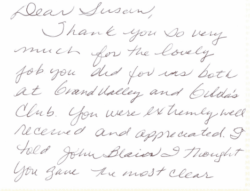 Dear Susan,
Thank you so very
much for the lovely
job you did for us both
at Grand Valley and
Club. You were extremely well
received and appreciated. I
told John I thought
you gave the most clear